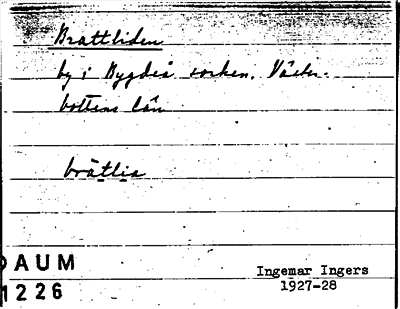 Brattliden
by i Bygdeå socken, Väster-
bottens län
brätlia
DAUM
1226
Ingemar Ingers
1927-28